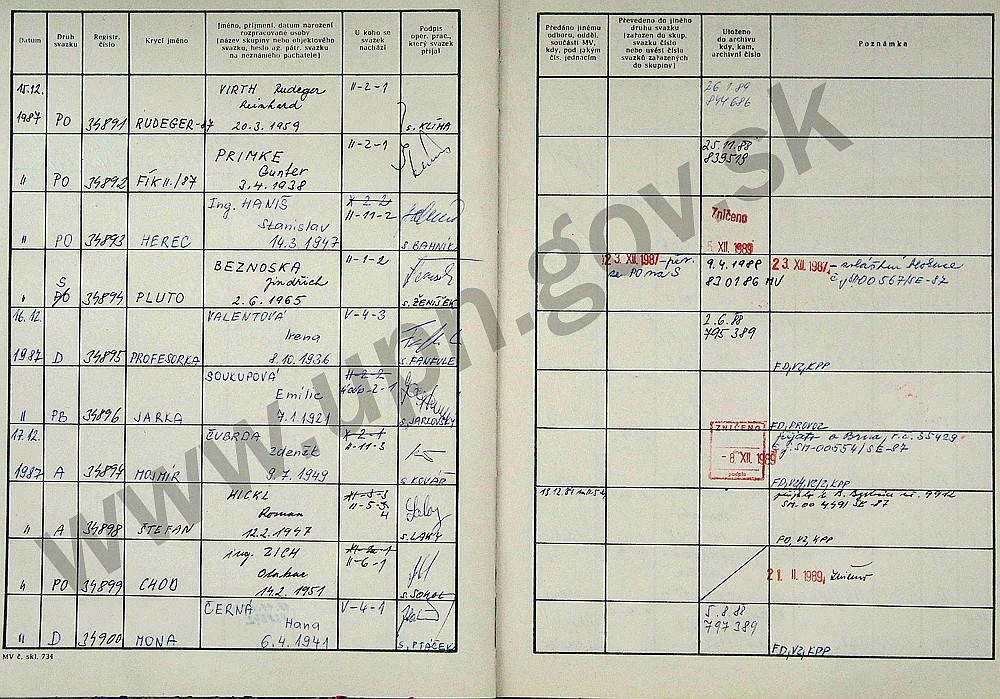 Datum
Druh svazku
Registr. číslo
Krycí jméno
Jméno, příjmení, datum narození
rozpracované osoby
(název skupiny nebo objektového
svazku, heslo ag. pátr. svazku
na neznámého pachatele)
U koho se
svazek
nachází
Podpis
oper. prac.,
který svazek
přijal
Předáno jinému
odboru, odděl.
součásti MV,
kdy, pod jakým
čís. jednacím
Převedeno do jiného
druhu svazku
(zařazen do skup.
svazku číslo
nebo uvést číslo
svazků zařazených
do skupiny)
Uloženo
do archivu
kdy, kam,
archivní číslo
Poznámka
15.12. VIRTH Rudeger II-2-1 26.1.89
Reinherd 844686
1987 PO 34891 RUDEGER-87 20.3.1959 s. KLÍMA
PRIMKE II-2-1 25.11.88
Gunter 839519
II PO 34892 FÍK II./87 3.4.1938
Ing. HANIŠ X-2-2
Stanislav II-11-2 Zničeno
II PO 34893 HEREC 14.3.1947 s. BAHNÍK 5. XII. 1989
BEZNOSKA II-1-2 23. XII. 1987 - per. 9.4.1988 23. XII. 1987 -
S Jindřich se PO na S 830186 MV
PO 34894 PLUTO 2.6.1965 s. ŽENÍŠEK 00567/SE-87
16.12. VALENTOVÁ V-4-3 2.6.88
Irena 795389
1987 D 34895 PROFESORKA 8.10.1936 s. FANFULE FD, VZ, KPP
SOUKUPOVÁ II-2-2
Emilie
II PB 34896 JARKA 7.1.1921 s. JARLOVSKÝ FD, PROVOZ
17.12. ČUBRDA X-2-1 ZNIČENO přijato z Brna, r.c. 35429
Zdeněk II-11-3 - 8 XII. 1989 č.j. SM-00554/SE-87
1987 A 34897 MOJMÍR 9.7.1949 s. KOVÁŘ podpis
HICKL II-5-3
Roman SM-00 4491 SK-87
II A 34898 ŠTEFAN 12.2.1947 s. LAKY PO, VZ, KPP
ing. ZICH
Otakar II-6-1 21. II. 1989, Zničeno
II PO 34899 CHOD 14.2.1951 s. SOKOL
ČERNÁ V-4-1 5.8.88
Hana 797389
II D 34900 MONA 6.4.1941 s. PTÁČEK FD, VZ, KPP
MV č. skl. 734
www.upn.gov.sk